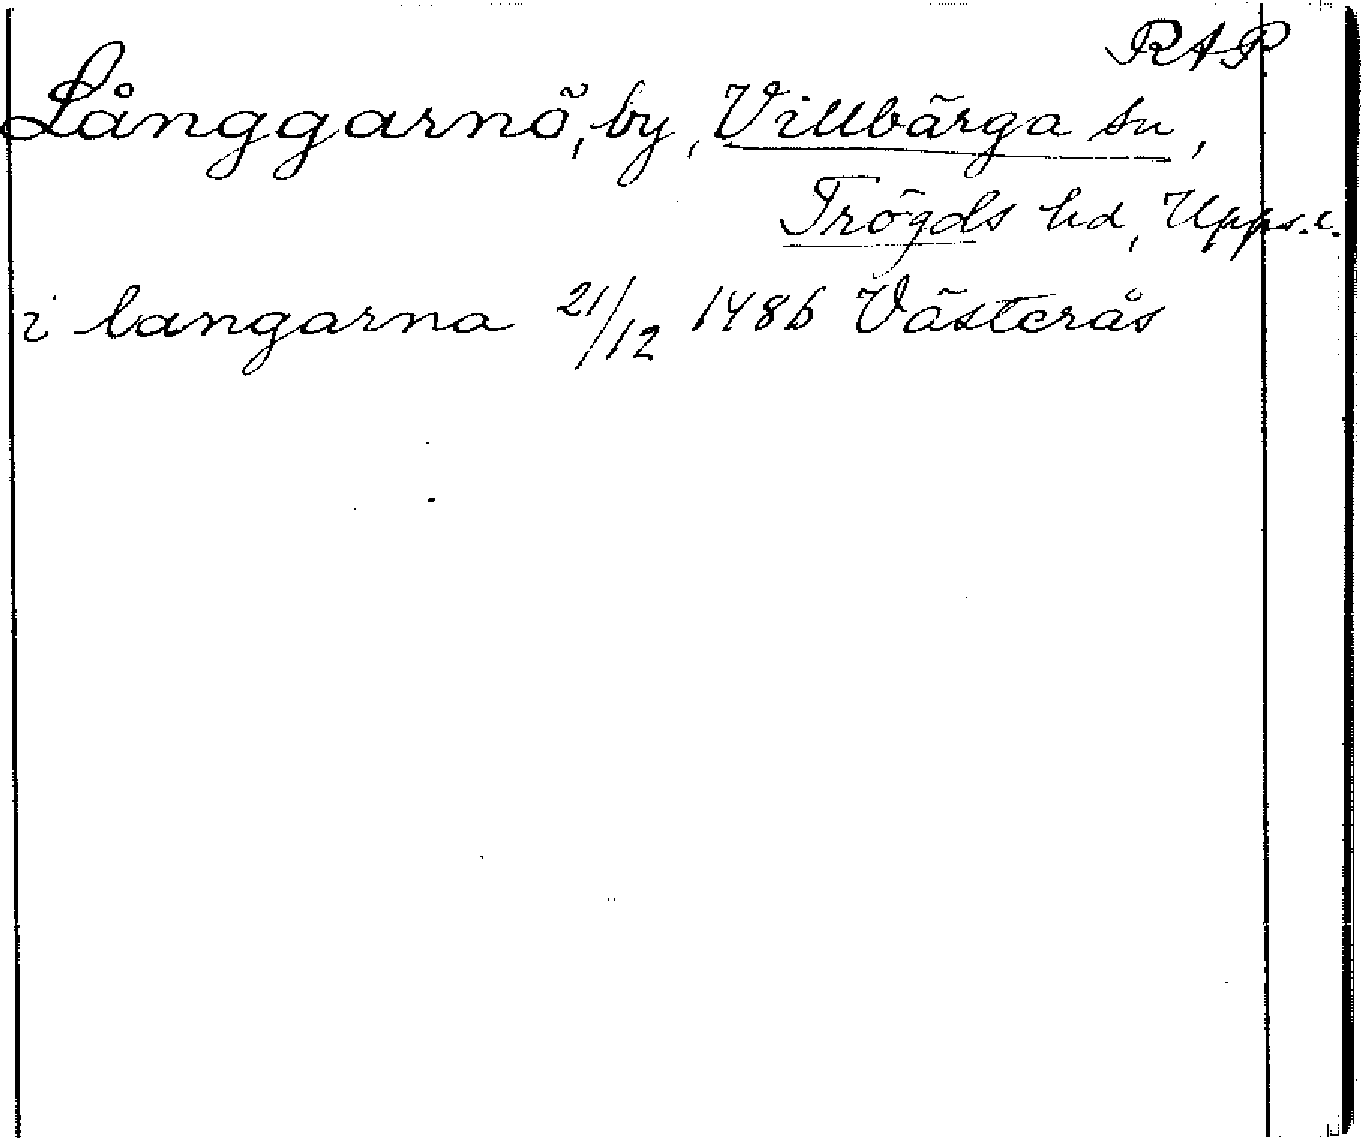 RAP
Långgarnö, by, Villbärga sn,
Trögds hd, Upps. l.
i langarna 21/12 1486 Västerås